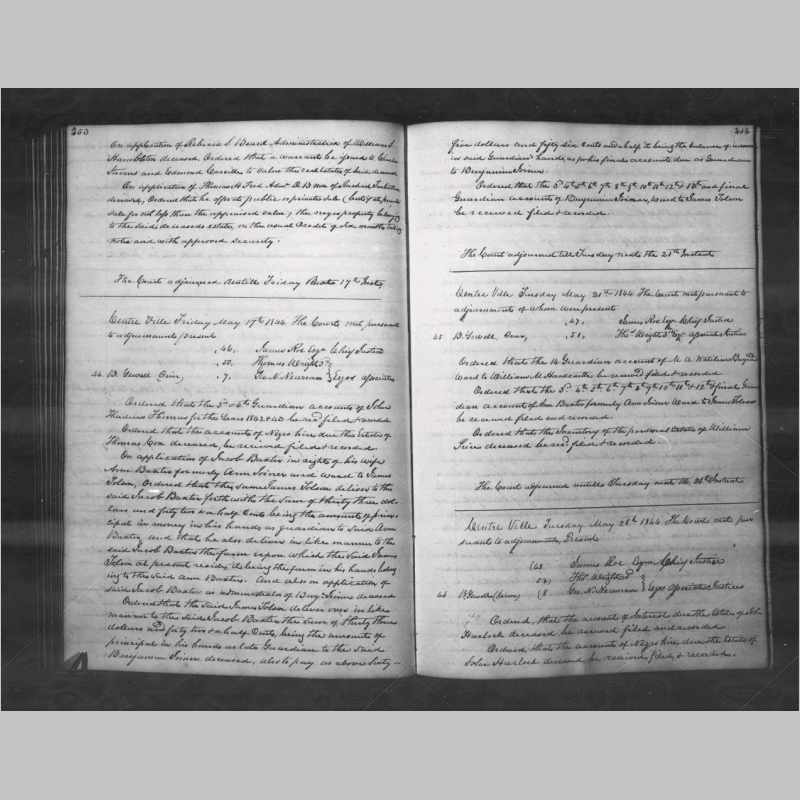 253
On application of Rebecca S Beard Administratrix of William
Hambleton deceased Ordered that a warrant be issued to
Stevens and Edward Carville to value the real estate of said deceased
On application of Thomas H Ford Adm D. B. Non of
deceased, Ordered that he offer at public or private sale (but if at private
sale for not less than the appraised value) the negro property belong
to the said deceaseds estate, on the usual Credit of Six months taking
notes and with approved security.
The Court adjourned until Friday Next 17th Insts
Centre Ville Friday May 17th 1844 The Courts met pursuant
to adjournment present
,46, James Roe Esqr Chief Justice
,50, Thomas Wright 3d
44 B. Gewell Crier, ,7, Geo. N. Newnam Esqrs associates
Ordered that the 5th & 6th Guardian accounts of John
Thomas for the years 1842 & 43 be recd filed & recd
Ordered that the accounts of Negro hire due the Estate of
Thomas Cox deceased, be received filed & recorded
On application of Jacob Baxter in right of his wife
Ann Baxter formerly Ann Joiner and ward to James
Tolson, Ordered that the same James Tolson deliver to the
said Jacob Baxter forthwith the Sum of thirty three dol
lars and forty two & a half Cents being the amount of prin
cipal in money in his hands as guardian to said Ann
Baxter and that he also deliver in like manner to the
said Jacob Baxter the farm upon which the said James
Tolson at present resides it being the farm in his hands belong
ing to the said Ann Baxter. And also on application of
said Jacob Baxter as administrator of Benj. Joiner deceased
Ordered that the said James Tolson deliver over in like
manner to the said Jacob Baxter the Sum of thirty three
dollars and forty two & a half Cents, being the amount of
principal in his hands as late Guardian to the said
Benjamin Joiner deceased, also to pay as above Sixty
five dollars and fifty six cents and a half it being the balance of income
in said Guardians hands, as pr his final accounts due as Guardian
to Benjamin Joiner
Ordered that the 3d 4th 5th 6th 7th 8th 9th 10th 11th 12th & 13th and final
Guardian accounts of Benjamin Joiner, ward to James Tolson
be received filed & recorded.
The Court adjourned till Tuesday next the 21st Instant
Centre Ville Tuesday May 21st 1844 The Court met pursuant to
adjournment of whom were present
,47, James Roe Esqr Chief Justice
45 B. Gewell Crier, ,51, Thos Wright 3d Esqr associate Justice
Ordered that the Guardian account of
ward to William be recd filed & recorded
Ordered that the 3d 4th 5th 6th 7th 8th 9th 10th 11th & 12th & final Guar
dian account of Ann Baxter formerly Ann Joiner Ward to James Tolson
be received filed and recorded.
Ordered that the Inventory of the personal estate of William
Price deceased be recd filed & recorded.
The Court adjourned until Tuesday next the 28th Instant
Centre Ville Tuesday May 28th 1844 The Court met pur
suant to adjournment, Present
(48 James Roe Esqr Chief Justice
52) Thos Wright 3d
46 B. Gewell (Crier) (8 Geo. N. Newnam Esqrs associate Justices
Ordered, that the account of Interest due the Estate of John
Harlock deceased be received filed and recorded
Ordered, that the accounts of Negro hire due the Estate of
John Harlock deceased be received, filed, & recorded.